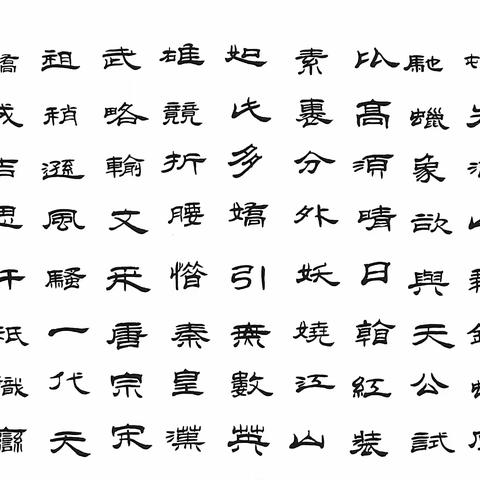 馳蠟象欲與天公試
比高須晴日看紅裝
素裹分外妖嬈江山
如此多嬌引無數英
雄競折腰惜秦皇漢
武略輸文采唐宗宋
祖稍遜風騷一代天
驕成吉思汗祇識彎